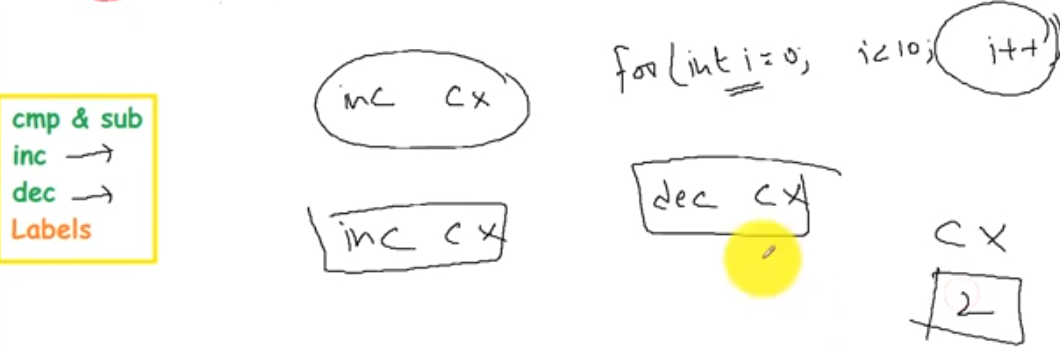 cmp & sub
inc →
dec →
Labels
inc cx
for(int i=0; i<10; i++)
inc cx
dec cx
cx
2